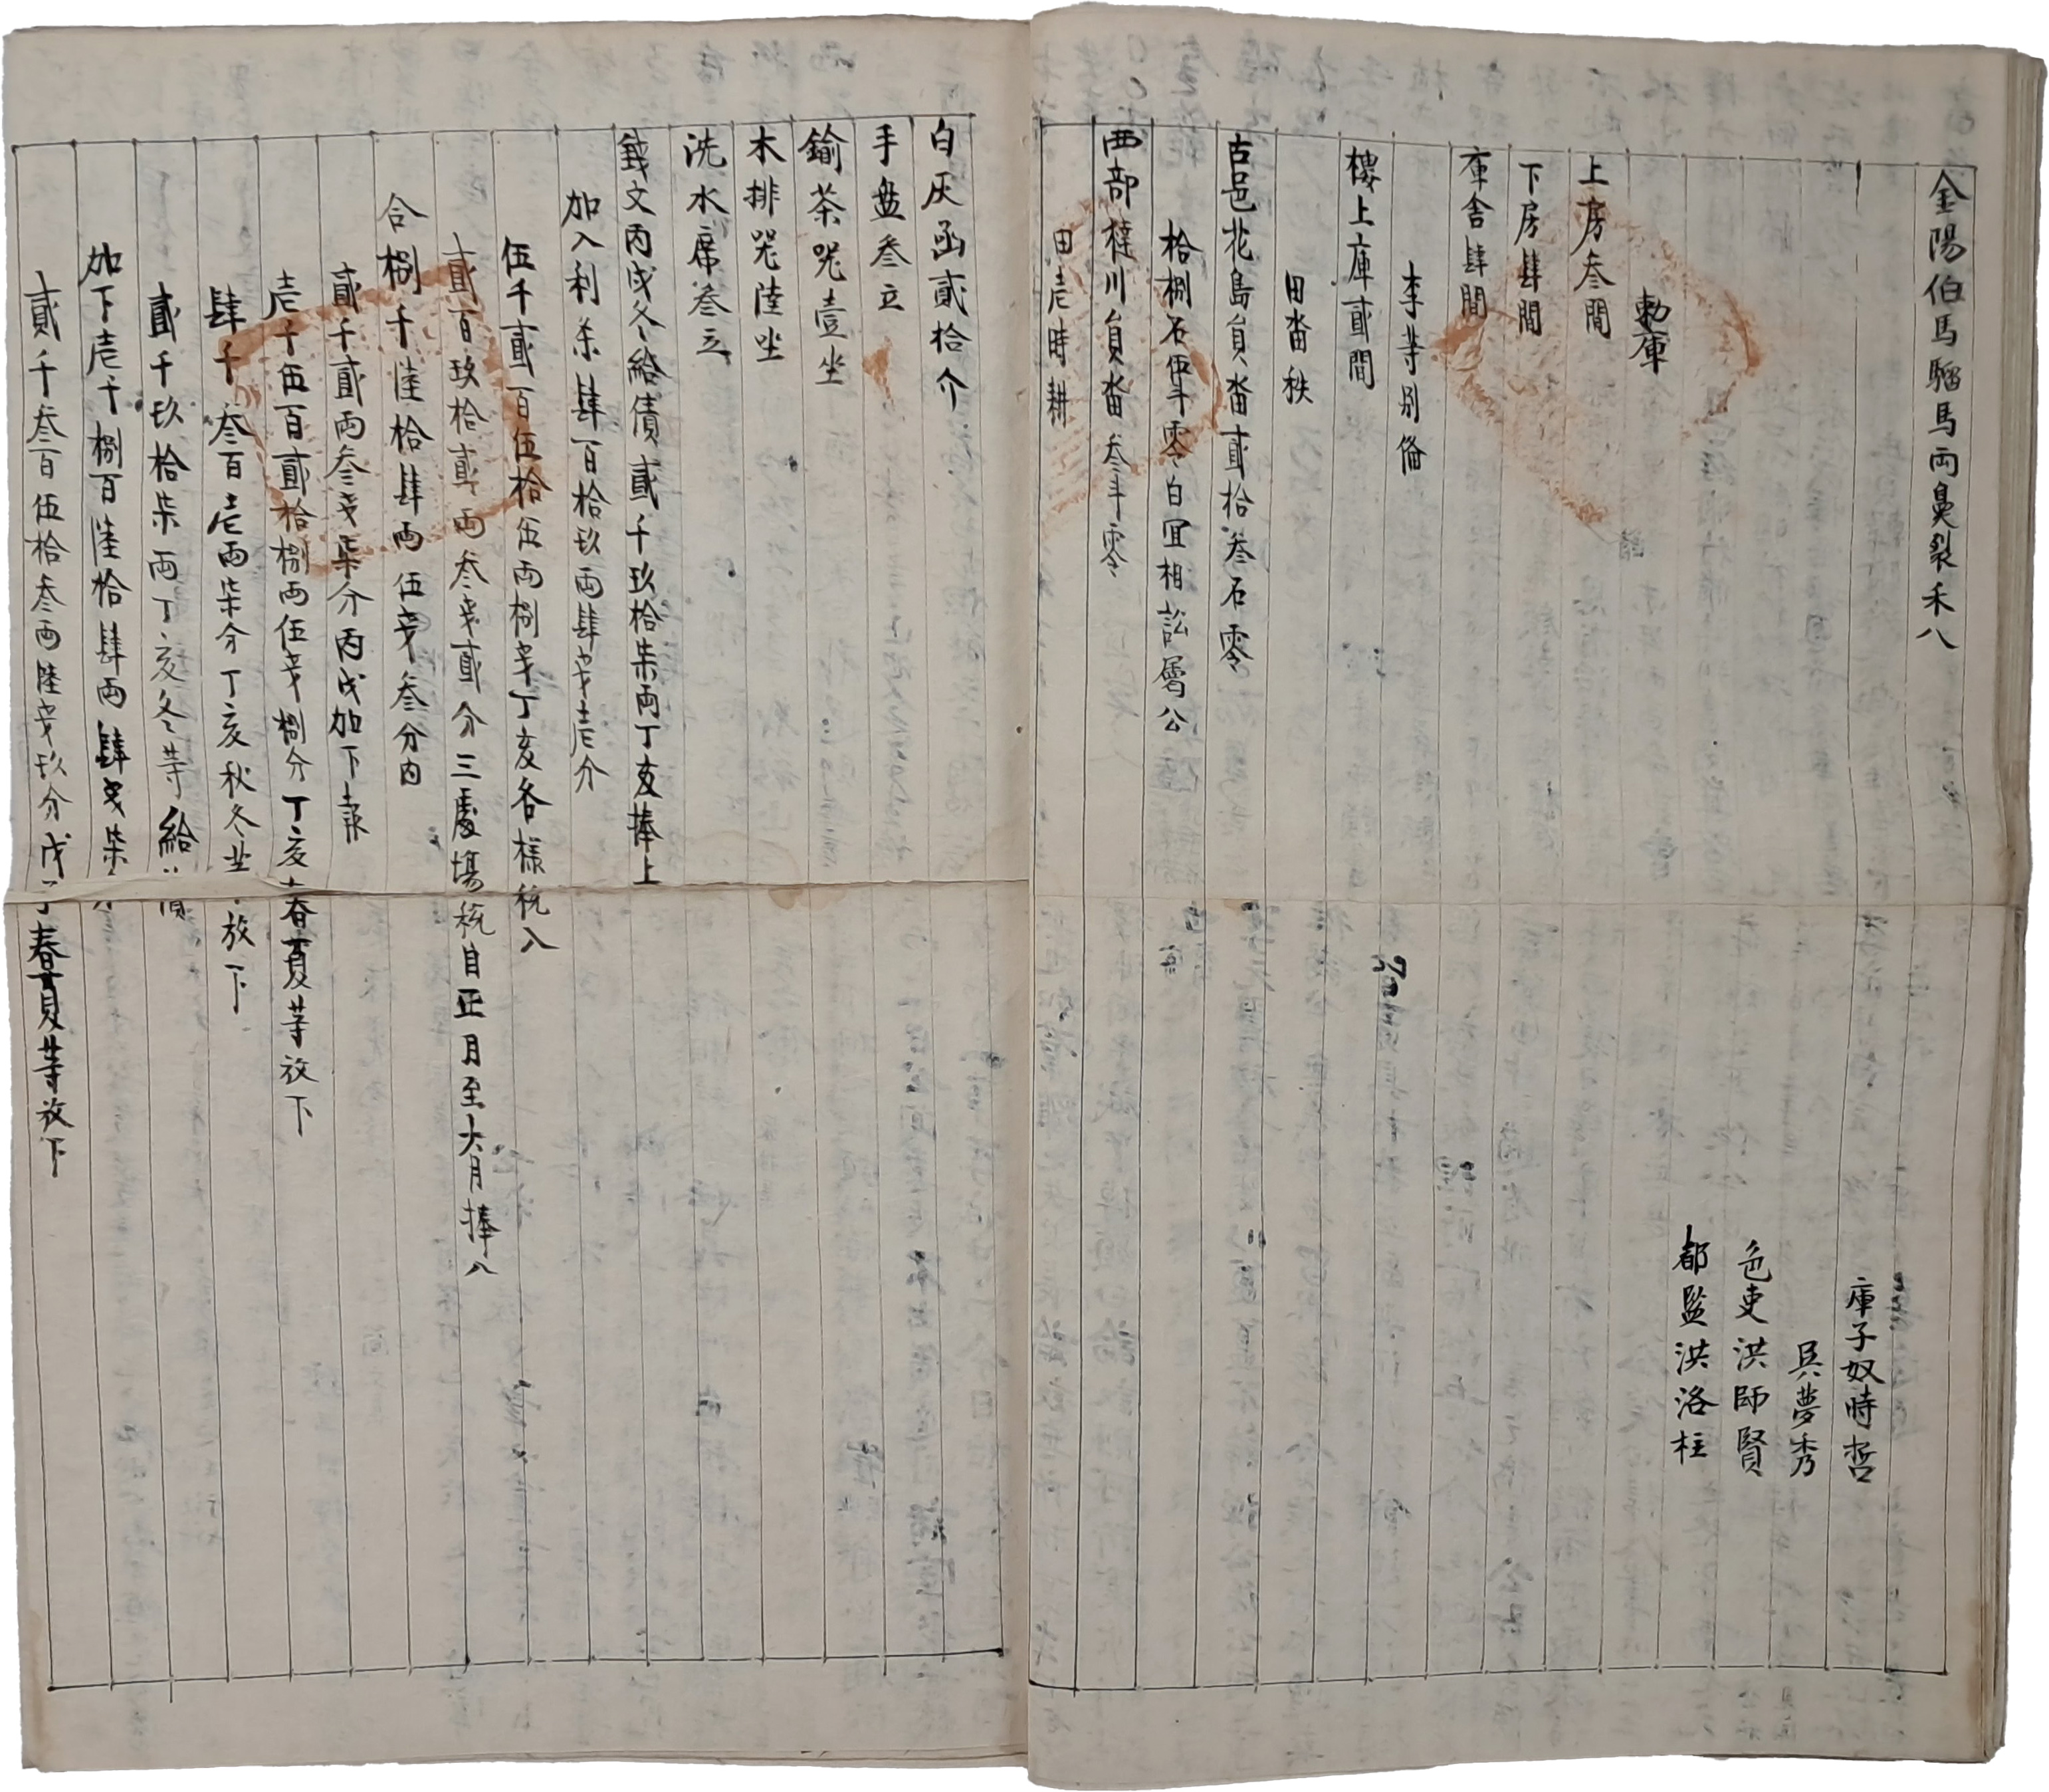 金陽伯馬騮馬兩鼻裂禾八
庫子奴時哲
吳夢秀
色吏洪師賢
都監洪洛柱
勅庫
上房叄間
下房肆間
庫舍肆間
李等別俻
樓上庫貳間
田畓秩
古邑北島員畓貳拾叄石零
拾捌石伍斗零白冝相訟屬公
西部㯖川員畓叄斗零
田壱時耕
白灰函貳拾介
手盤叄立
鍮茶噐壹坐
木排噐陸坐
洗水席叄立
錢文丙戌冬給債貳千玖拾柒兩丁亥捧上
加入利条肆百拾玖兩肆戔壱分
伍千貳百伍拾伍兩捌戔丁亥各樣稅入
貳百玖拾貳兩叄戔貳分三處場稅自正月至六月捧入
合捌千陸拾肆兩伍戔叄分內
貳千貳兩叄戔柒分丙戌加下報
壱千伍百貳拾捌兩伍戔捌分丁亥春夏等放下
肆千叄百壱兩柒分丁亥秋冬等放下
貳千玖拾柒兩丁亥冬等給債
加下壱千捌百陸拾肆兩肆戔柒分
貳千叄百伍拾叄兩陸戔玖分戊子春夏等放下